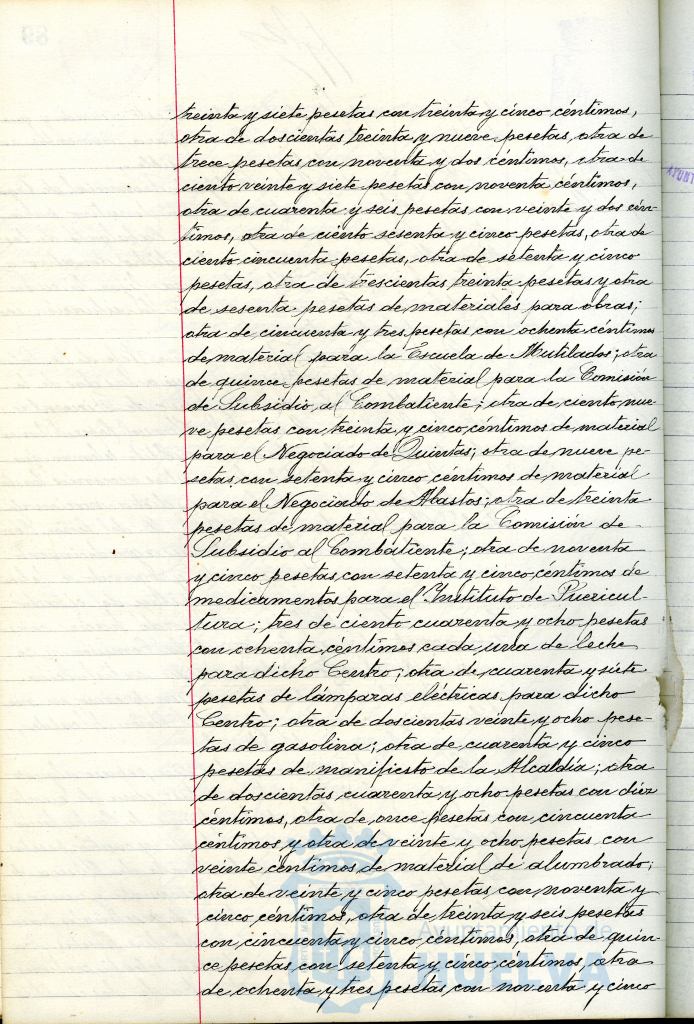 treinta y siete pesetas con treinta y cinco céntimos,
otra de doscientas treinta y nueve pesetas, otra de
trece pesetas con noventa y dos céntimos, otra de
ciento veinte y siete pesetas con noventa céntimos,
otra de cuarenta y seis pesetas con veinte y dos cén-
timos, otra de ciento sesenta y cinco pesetas, otra de
ciento cincuenta pesetas, otra de setenta y cinco
pesetas, otra de trescientas treinta pesetas y otra
de sesenta pesetas de materiales para obras;
otra de cincuenta y tres pesetas con ochenta céntimos
de material para la Escuela de Mutilados; otra
de quince pesetas de material para la Comisión
de Subsidio al Combatiente; otra de ciento nue-
ve pesetas con treinta y cinco céntimos de material
para el Negociado de Quintas; otra de nueve pe-
setas con setenta y cinco céntimos de material
para el Negociado de Abastos; otra de treinta
pesetas de material para la Comisión de
Subsidio al Combatiente; otra de noventa
y cinco pesetas con setenta y cinco céntimos de
medicamentos para el Instituto de Puericul-
tura; tres de ciento cuarenta y ocho pesetas
con ochenta céntimos cada una de leche
para dicho Centro; otra de cuarenta y siete
pesetas de lámparas eléctricas para dicho
Centro; otra de doscientas veinte y ocho pese-
tas de gasolina; otra de cuarenta y cinco
pesetas de manifiesto de la Alcaldía; otra
de doscientas cuarenta y ocho pesetas con diez
céntimos, otra de once pesetas con cincuenta
céntimos y otra de veinte y ocho pesetas con
veinte céntimos de material de alumbrado;
otra de veinte y cinco pesetas con noventa y
cinco céntimos, otra de treinta y seis pesetas
con cincuenta y cinco céntimos, otra de quin-
ce pesetas con setenta y cinco céntimos, otra
de ochenta y tres pesetas con noventa y cinco
Ayuntamiento de
HUELVA
AYUNT
89